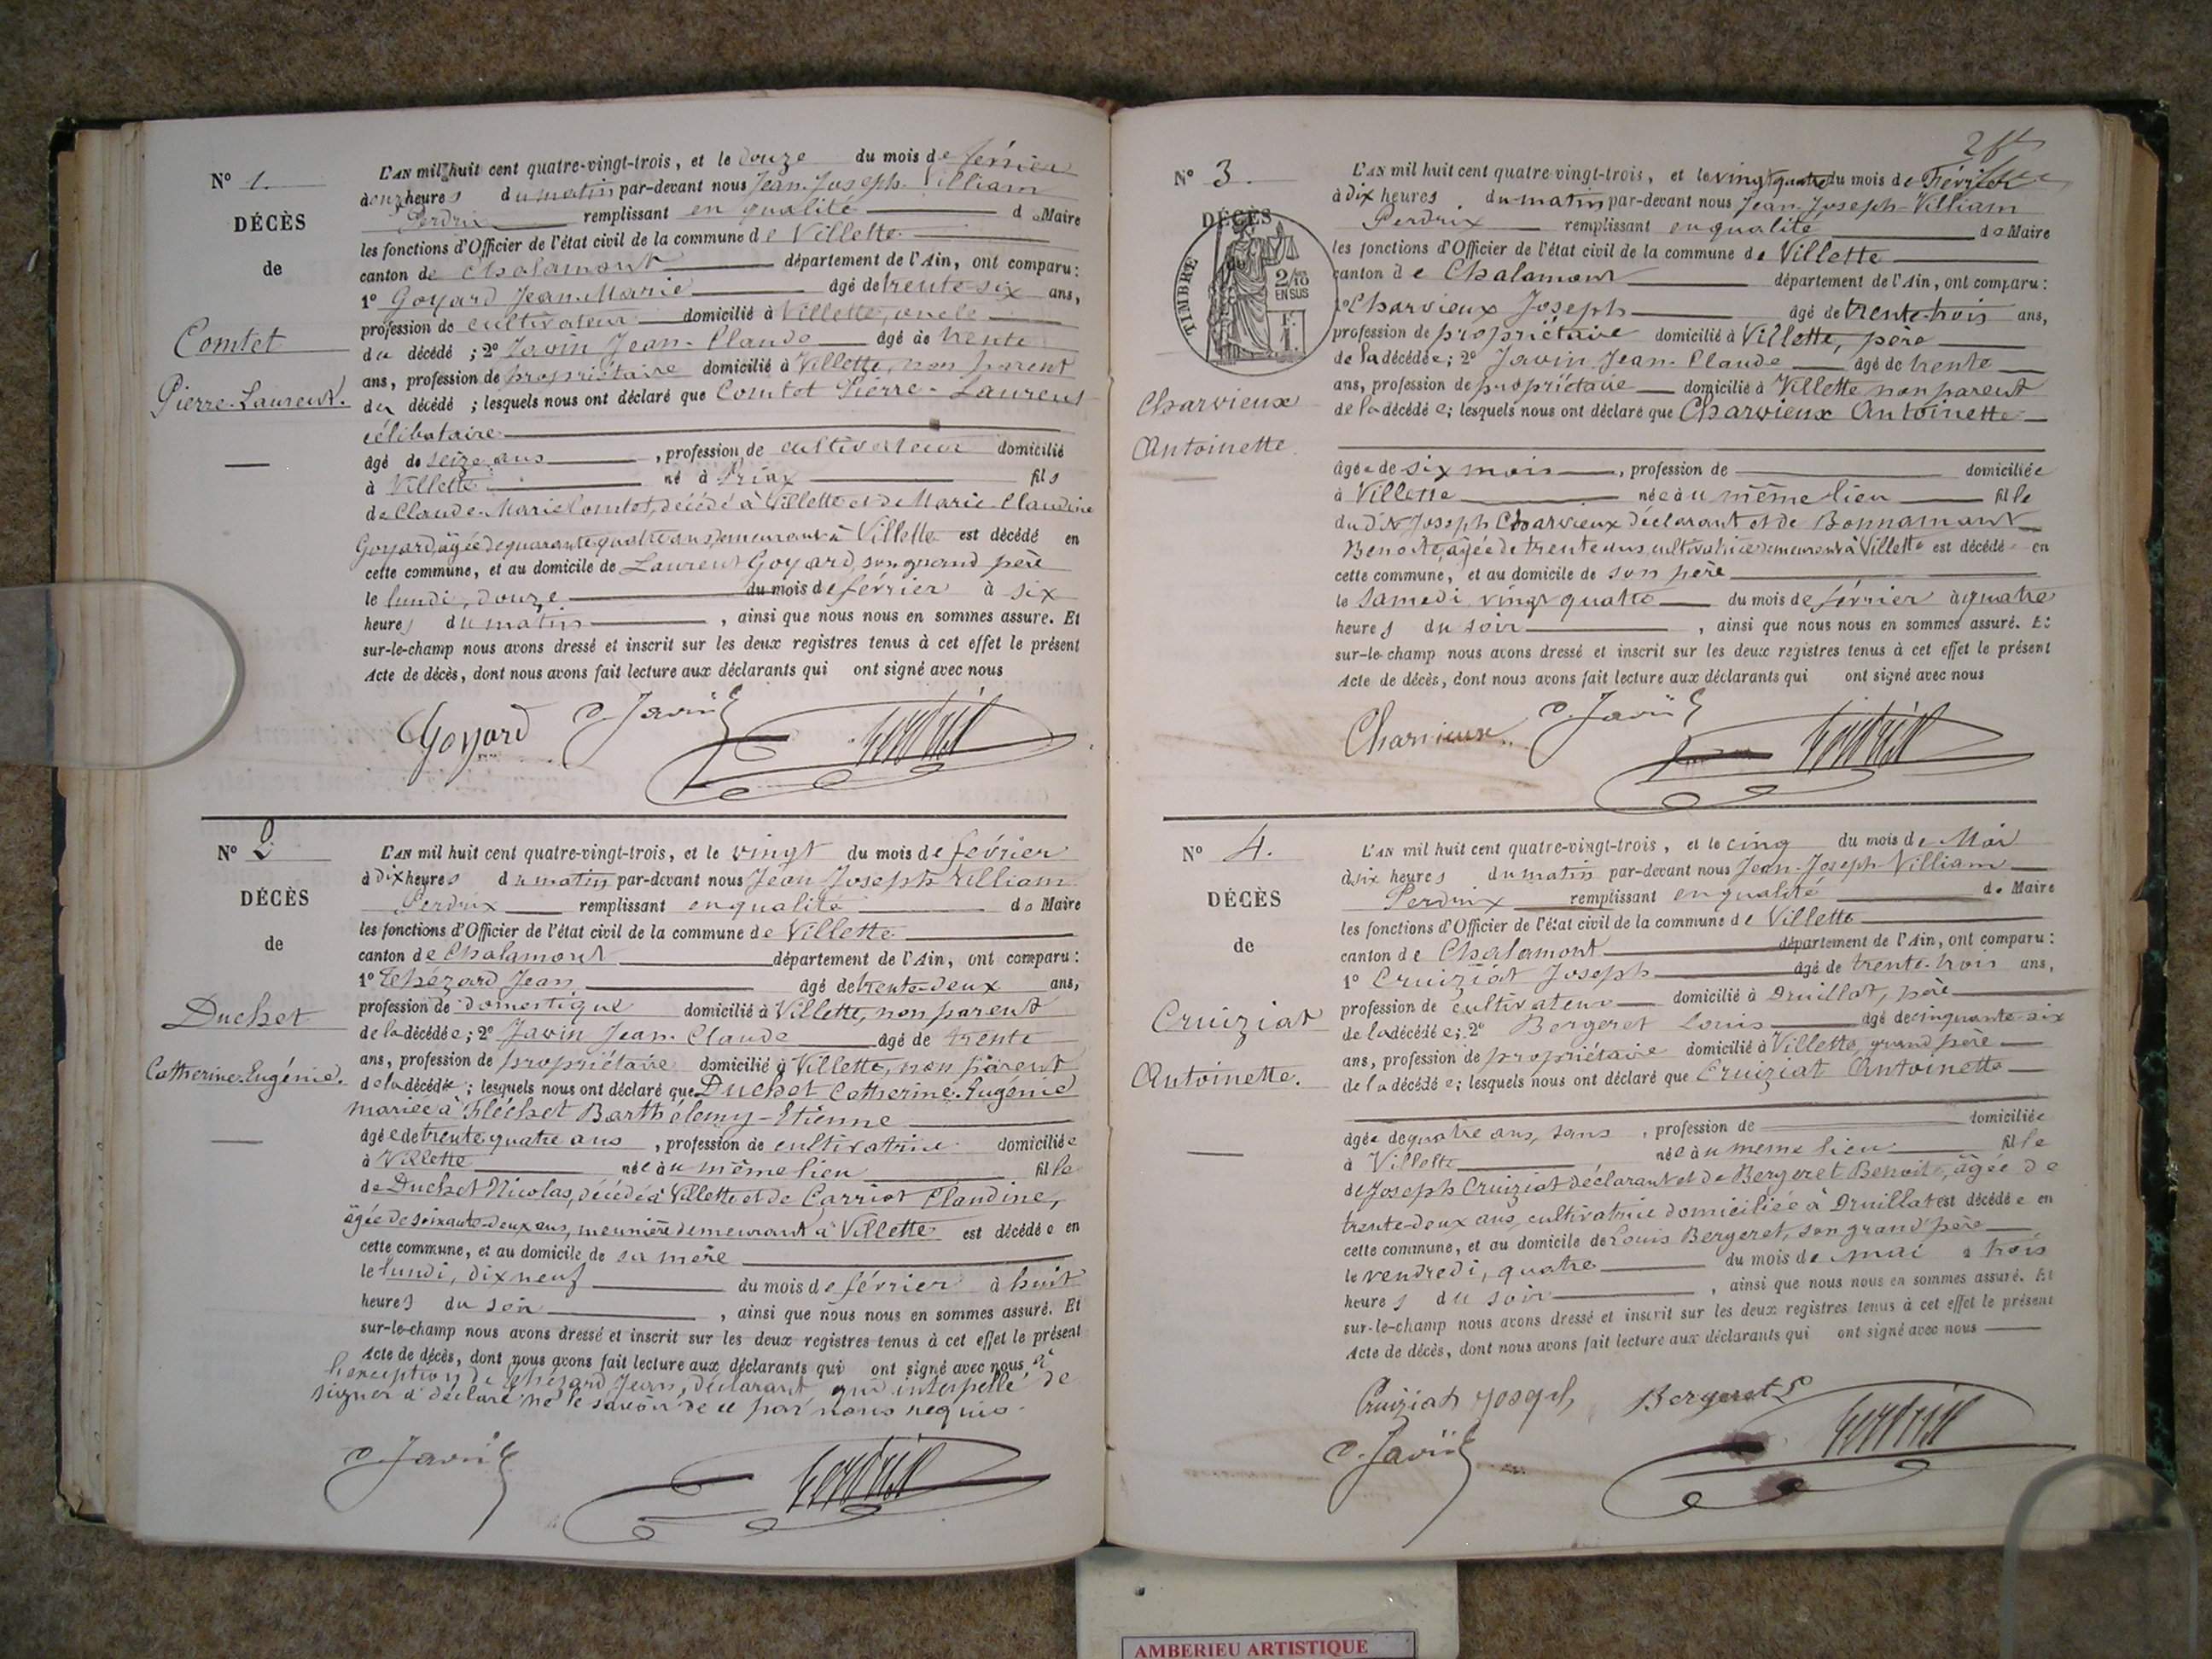 N° 1.
DÉCÈS
de
Comtet
Pierre-Laurent.
L'AN mil huit cent quatre-vingt-trois, et le douze du mois de février
à onze heures du matin par-devant nous Jean-Joseph-Villiam
Perdrix remplissant en qualité de Maire
les fonctions d'Officier de l'état civil de la commune de Villette
canton de Chalamont département de l'Ain, ont comparu :
1° Goyard Jean-Marie âgé de trente-six ans,
profession de cultivateur domicilié à Villette, oncle
du décédé ; 2° Javin Jean-Claude âgé de trente
ans, profession de propriétaire domicilié à Villette, non parent
du décédé ; lesquels nous ont déclaré que Comtet Pierre-Laurent
célibataire
âgé de seize ans , profession de cultivateur domicilié
à Villette né à Priay fils
de Claude-Marie Comtet, décédé à Villette et de Marie-Claudine
Goyard, âgée de quarante quatre ans, demeurant à Villette est décédé en
cette commune, et au domicile de Laurent Goyard, son grand père
le lundi, douze du mois de février à six
heures du matin , ainsi que nous nous en sommes assuré. Et
sur-le-champ nous avons dressé et inscrit sur les deux registres tenus à cet effet le présent
Acte de décès, dont nous avons fait lecture aux déclarants qui ont signé avec nous
Goyard C. Javin Perdrix
N° 2
DÉCÈS
de
Duchet
Catherine-Eugénie.
L'AN mil huit cent quatre-vingt-trois, et le vingt du mois de février
à dix heures du matin par-devant nous Jean Joseph Villiam
Perdrix remplissant en qualité de Maire
les fonctions d'Officier de l'état civil de la commune de Villette
canton de Chalamont département de l'Ain, ont comparu :
1° Thézard Jean âgé de trente-deux ans,
profession de domestique domicilié à Villette, non parent
de la décédée ; 2° Javin Jean-Claude âgé de trente
ans, profession de propriétaire domicilié à Villette, non parent
de la décédée ; lesquels nous ont déclaré que Duchet Catherine-Eugénie
mariée à Fléchet Barthélemy-Etienne
âgée de trente quatre ans , profession de cultivatrice domiciliée
à Villette née au même lieu fille
de Duchet Nicolas, décédé à Villette et de Carriot Claudine,
âgée de soixante-deux ans, meunière demeurant à Villette est décédée en
cette commune, et au domicile de sa mère
le lundi, dix neuf du mois de février à huit
heures du soir , ainsi que nous nous en sommes assuré. Et
sur-le-champ nous avons dressé et inscrit sur les deux registres tenus à cet effet le présent
Acte de décès, dont nous avons fait lecture aux déclarants qui ont signé avec nous à
l'exception de Thézard Jean, déclarant qui interpellé de
signer a déclaré ne le savoir de ce par nous requis.
C. Javin Perdrix
N° 3.
DÉCÈS
TIMBRE
2/10
EN SUS
Charvieux
Antoinette.
L'AN mil huit cent quatre-vingt-trois, et le vingt quatre du mois de Février
à dix heures du matin par-devant nous Jean-Joseph-Villiam
Perdrix remplissant en qualité de Maire
les fonctions d'Officier de l'état civil de la commune de Villette
canton de Chalamont département de l'Ain, ont comparu :
1° Charvieux Joseph âgé de trente-trois ans,
profession de propriétaire domicilié à Villette, père
de la décédée ; 2° Javin Jean-Claude âgé de trente
ans, profession de propriétaire domicilié à Villette non parent
de la décédée ; lesquels nous ont déclaré que Charvieux Antoinette
âgée de six mois , profession de domiciliée
à Villette née au même lieu fille
du dit Joseph Charvieux déclarant et de Bonnamant
Benoite âgée de trente ans, cultivatrice demeurant à Villette est décédée en
cette commune, et au domicile de son père
le Samedi vingt quatre du mois de février à quatre
heures du soir , ainsi que nous nous en sommes assuré. Et
sur-le-champ nous avons dressé et inscrit sur les deux registres tenus à cet effet le présent
Acte de décès, dont nous avons fait lecture aux déclarants qui ont signé avec nous
Charvieux C. Javin Perdrix
N° 4.
DÉCÈS
de
Cruiziat
Antoinette.
L'AN mil huit cent quatre-vingt-trois, et le cinq du mois de Mai
à six heures du matin par-devant nous Jean-Joseph-Villiam
Perdrix remplissant en qualité de Maire
les fonctions d'Officier de l'état civil de la commune de Villette
canton de Chalamont département de l'Ain, ont comparu :
1° Cruiziat Joseph âgé de trente-trois ans,
profession de cultivateur domicilié à Druillat, père
de la décédée ; 2° Bergeret Louis âgé de cinquante-six
ans, profession de propriétaire domicilié à Villette, grand père
de la décédée ; lesquels nous ont déclaré que Cruiziat Antoinette
âgée de quatre ans, sans , profession de domiciliée
à Villette née au même lieu fille
de Joseph Cruiziat déclarant et de Bergeret Benoite, âgée de
trente-deux ans, cultivatrice domiciliée à Druillat est décédée en
cette commune, et au domicile de Louis Bergeret, son grand'père
le vendredi, quatre du mois de mai à trois
heures du soir , ainsi que nous nous en sommes assuré. Et
sur-le-champ nous avons dressé et inscrit sur les deux registres tenus à cet effet le présent
Acte de décès, dont nous avons fait lecture aux déclarants qui ont signé avec nous
Cruiziat Joseph Bergeret L
C. Javin Perdrix
AMBERIEU ARTISTIQUE